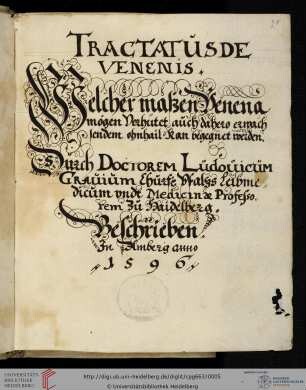 TRACTATUS DE
VENENIS.
Welcher maßen Venena
mögen Verhütet, auch dahero erwach
sendem ohnhail kan begegnet werden,
Durch DOCTOREM LUDOUICUM
GRAUIUM Churf. Pfaltz Leibme
dicum vnde Medicinæ Professo
rem Zu Haidelberg.
Beschrieben.
In Amberg anno
1596
UNIVERSITÄTS-
BIBLIOTHEK
HEIDELBERG
http://digi.ub.uni-heidelberg.de/diglit/cpg663/0005
© Universitätsbibliothek Heidelberg